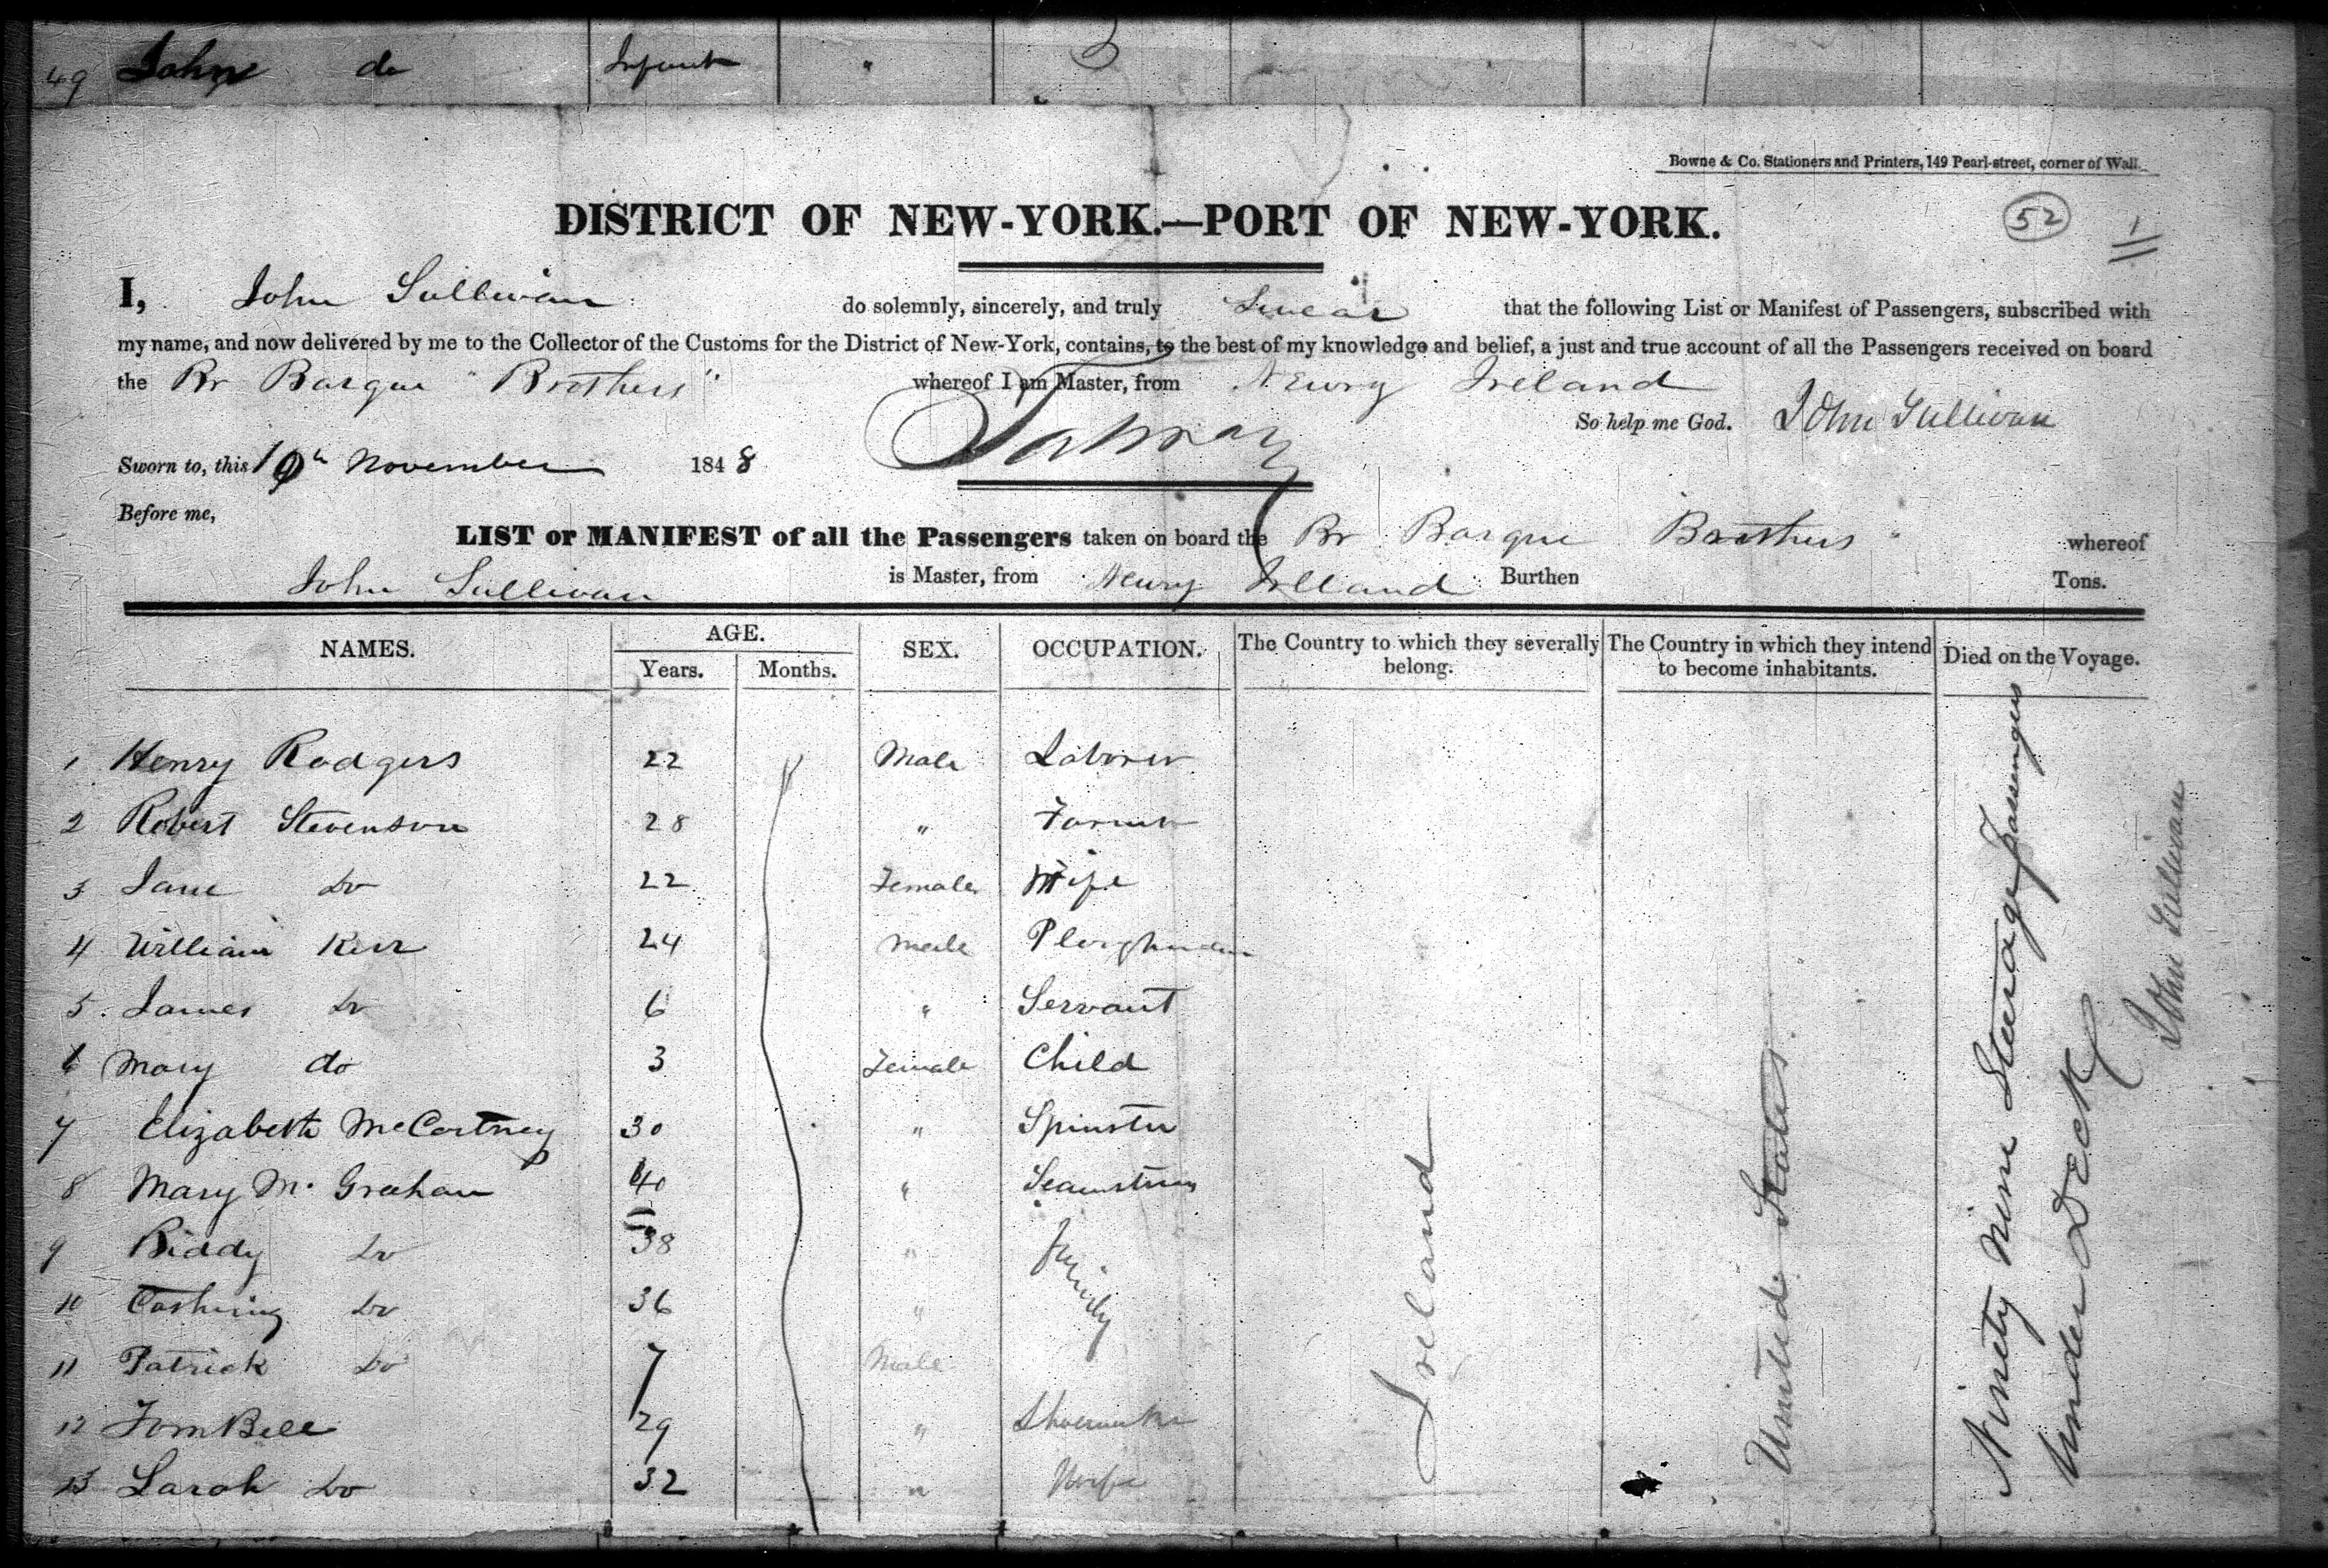 49 John do Infant "
Bowne & Co. Stationers and Printers, 149 Pearl-street, corner of Wall.
DISTRICT OF NEW-YORK.—PORT OF NEW-YORK.
52 1
I, John Sullivan do solemnly, sincerely, and truly Swear that the following List or Manifest of Passengers, subscribed with
my name, and now delivered by me to the Collector of the Customs for the District of New-York, contains, to the best of my knowledge and belief, a just and true account of all the Passengers received on board
the Br Barque "Brothers" whereof I am Master, from Newry Ireland
So help me God. John Sullivan
Sworn to, this 10th November 1848
Before me,
LIST or MANIFEST of all the Passengers taken on board the Br Barque Brothers " whereof
John Sullivan is Master, from Newry Ireland Burthen Tons.
NAMES. AGE. Years. Months. SEX. OCCUPATION. The Country to which they severally belong. The Country in which they intend to become inhabitants. Died on the Voyage.
1 Henry Rodgers 22 Male Laborer
2 Robert Stevenson 28 " Farmer
3 Jane Do 22 Female Wife
4 William Kerr 24 Male Ploughman
5 James Do 6 " Servant
6 Mary do 3 Female Child
7 Elizabeth McCartney 30 " Spinster
8 Mary Mc Grahan 40 " Seamstress
9 Biddy Do 38 "
10 Do 36 "
family
11 Patrick Do 7 Male
12 Tom Bell 29 " Shoemaker
13 Sarah Do 32 " Wife
Ireland
United States
Ninety Nine Steerage Passengers
Under Deck
John Sullivan